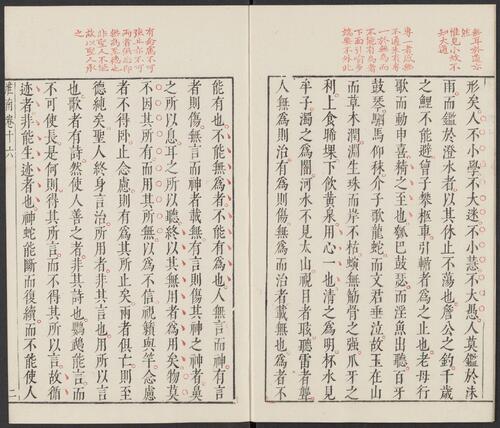 惟見小故不
知大通
形矣人不小學不大迷不小慧不大愚人莫鑑於沬
雨而鑑於澄水者以其休止不蕩也詹公之釣千歲
之鯉不能避曾子攀柩車引輴者為之止也老母行
歌而動申喜精之至也瓠巴鼓瑟而淫魚出聽百牙
鼓琴駟馬仰秣介子歌龍蛇而文君垂泣故玉在山
而草木潤淵生珠而岸不枯螾無筋骨之强爪牙之
利上食晞堁下飲黃泉用心一也清之為明杯水見
牟子濁之為闇河水不見太山視日者眩聽雷者聾
人無為則治有為則傷無為而治者載無也為者不
一於無為而
不能有為者
端要不外此
能有也不能無為者不能有為也人無言而神有言
者則傷無言而神者載無有言則傷其神之神者鼻
之所以息耳之所以聽終以其無用者為用矣物莫
不因其所有而用其所無以為不信視籟與竽念慮
者不得卧止念慮則有為其所止矣兩者俱亡則至
德純矣聖人終身言治所用者非其言也用所以言
也歌者有詩然使人善之者非其詩也鸚鵡能言而
不可使長是何則得其所言而不得其所以言故循
迹者非能生迹者也神蛇能斷而復續而不能使人
無為至德也
非聖人不能
故以聖人承
之
淮南卷十六
二